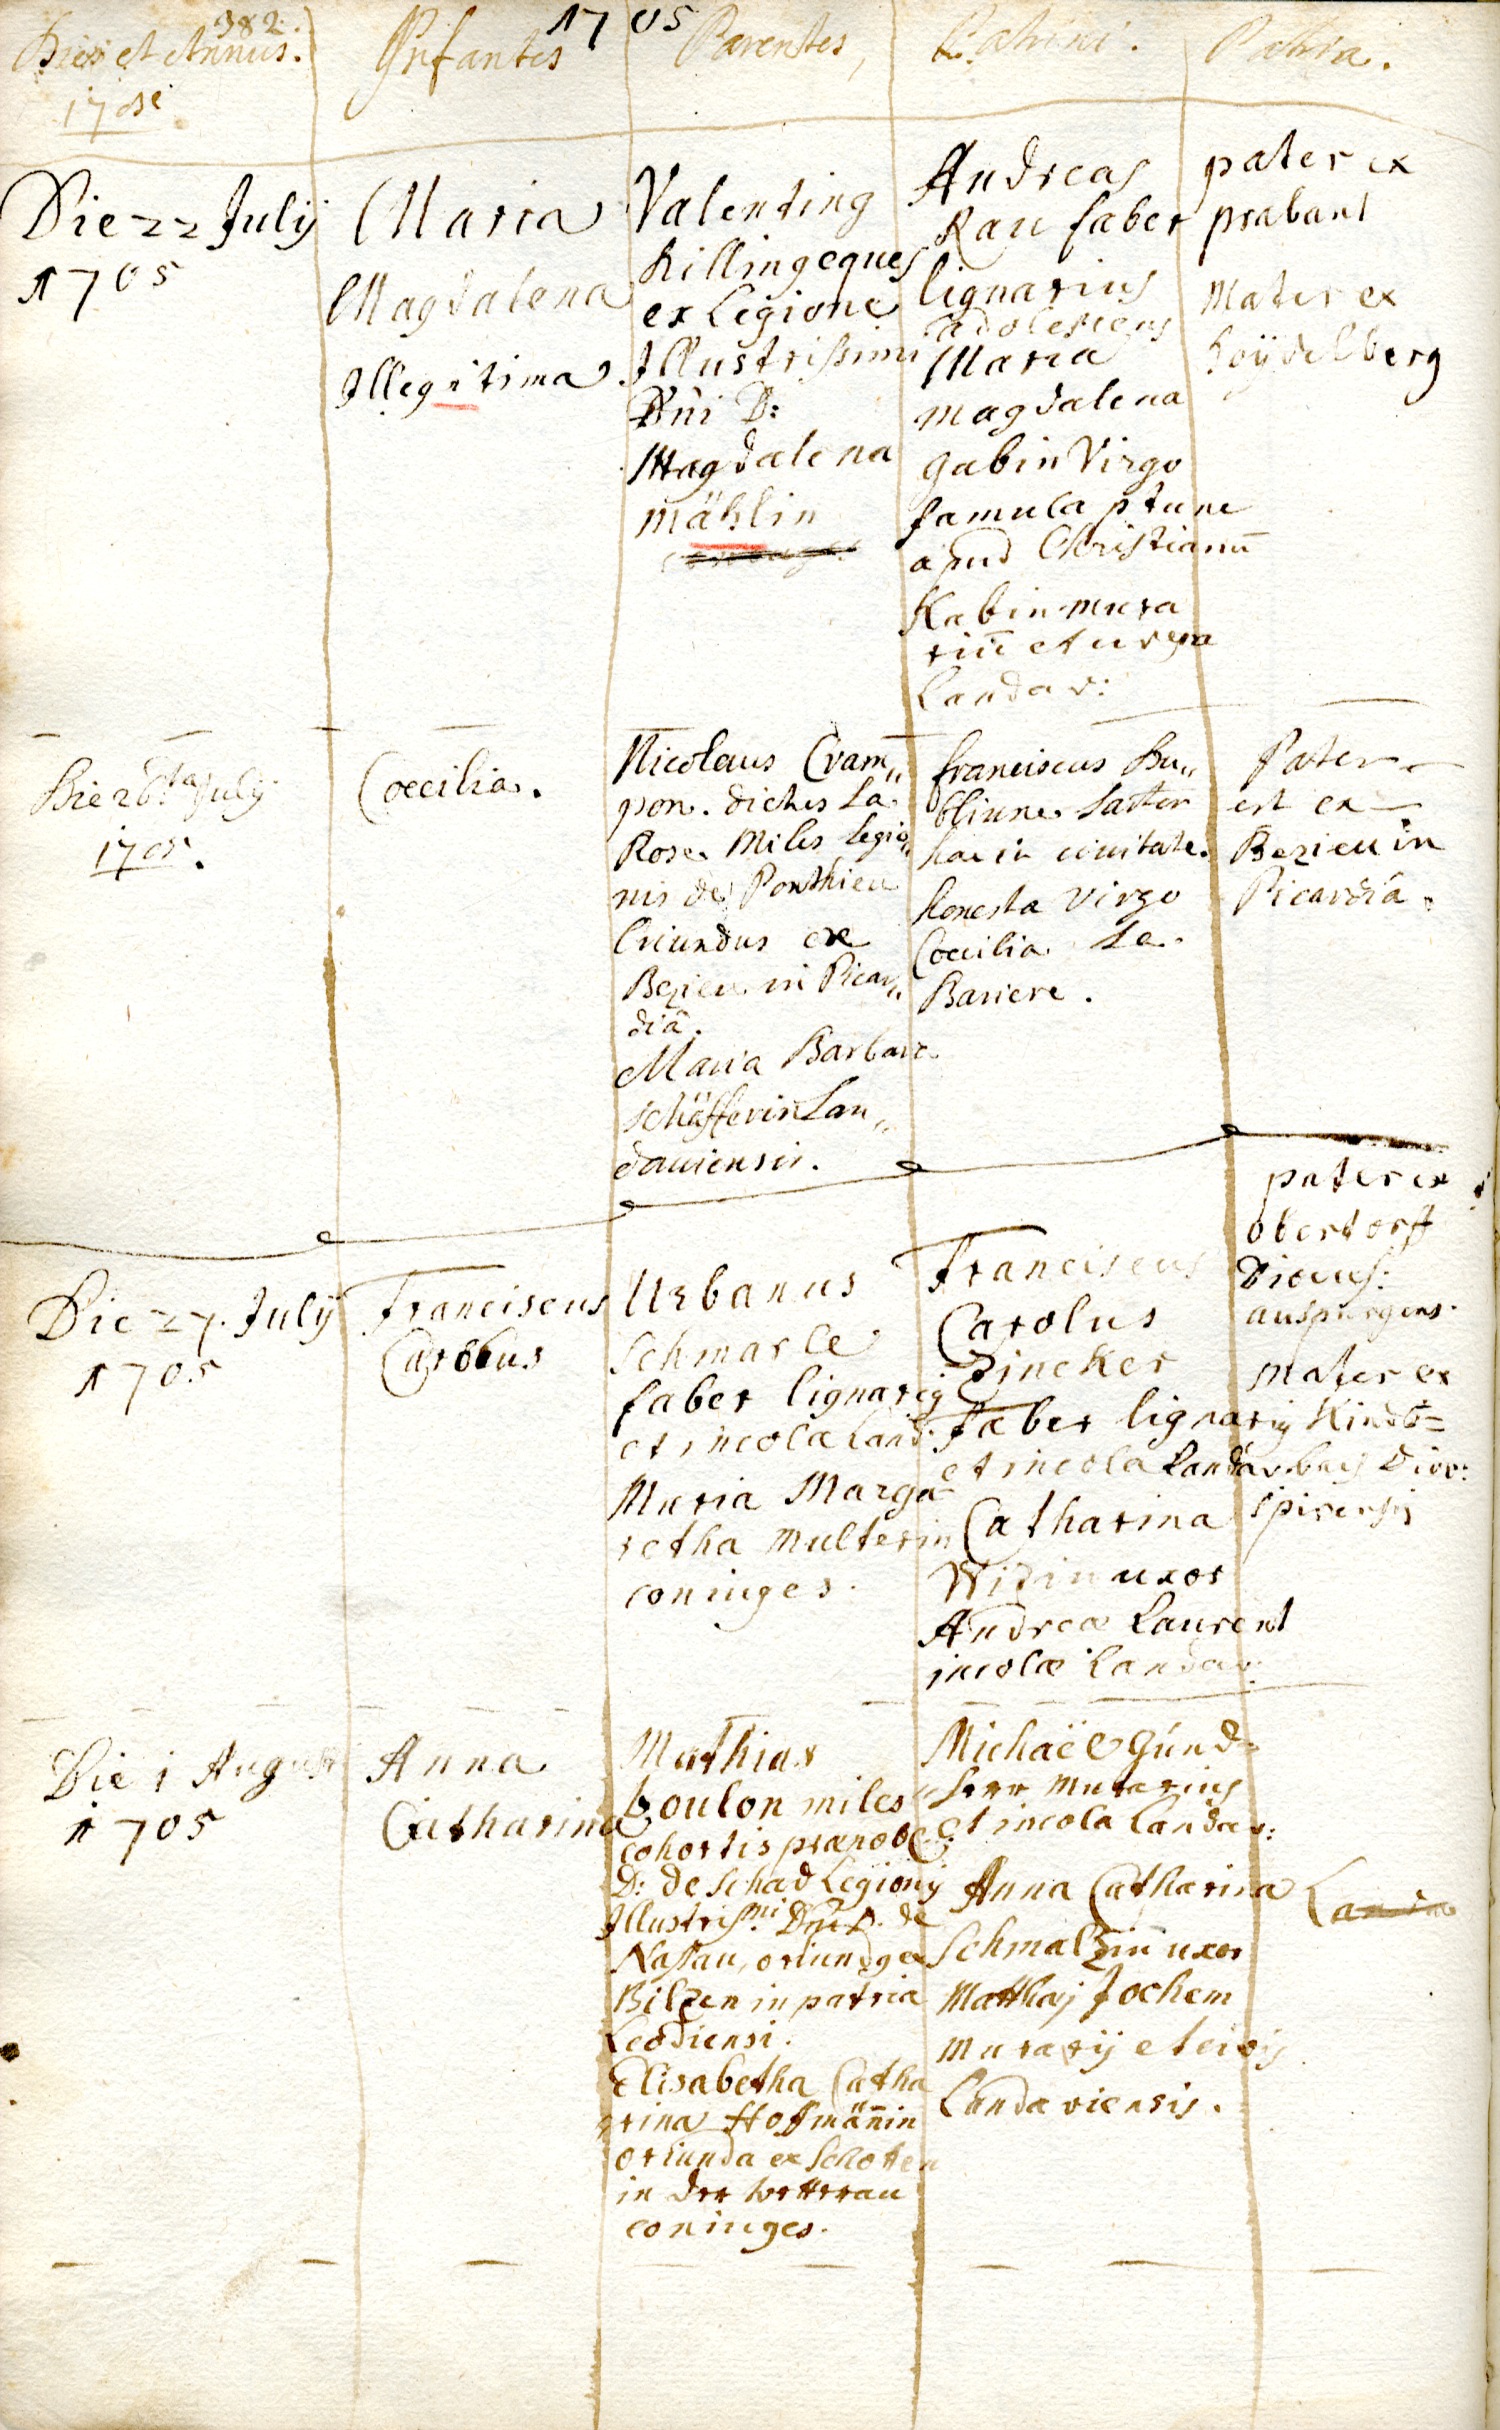 382.
1705
Dies et Annus.
1705
Infantes
Parentes,
Patrini.
Patria.
Die 22 July
1705
Maria
Magdalena
Illegitima
Valentinq
killing eques
ex Legione
Illustrissimi
Dni D:
Magdalena
mählin
Andreas
Rau faber
lignarius
adolescens
Maria
magdalena
gabin Virgo
famula p tunc
apud Christianū
Kabin mura
riū et
Landav:
pater ex
prabant
Mater ex
hoÿdelberg
Die 26ta July
1705.
Coecilia.
Nicolaus Cram„
pon. dictus La
Rose. Miles Legio„
nis de Ponthieu
Oriundus ex
Bezieu in Picar„
diâ.
Maria Barbara
schäfferin Lan„
daviensis.
franciscus Bu„
bliune. Satler
hac in civitate.
honesta virgo
Coecilia La.
Bariere.
Pater
est ex
Bezieu in
Picardiâ.
Die 27. July
1705
Franciscus
Carolus
Urbanus
Schmarle
faber lignariq
et incola Land:
Maria Marga
retha Multerin
coniuges.
Franciscus
Carolus
Zincker
Faber lignariq
et incola Landav.
Catharina
Widin uxor
Andreæ Laurent
incolæ Landav:
pater ex
obertorff
Diœces:
auspurgens.
Mater ex
Kindt=
Diœc:
spirensis
Die 1 August
1705
Anna
Catharina
Mathias
boulon miles
cohortis prænob
D: de Schad Legionis
Illustrissmi Dni D. de
Nassau, oriundq ex
Bilzen in patria
Leodiensi.
Elisabetha Catha
rina Hoffmäñin
oriunda ex Schotten
in der wetterau
coniuges.
Michaël Günd=
Murarius
et incola Landav:
Anna Catharina
Schmalzin uxor
Matthæj Jochem
Murarij et civis
Landaviensis.